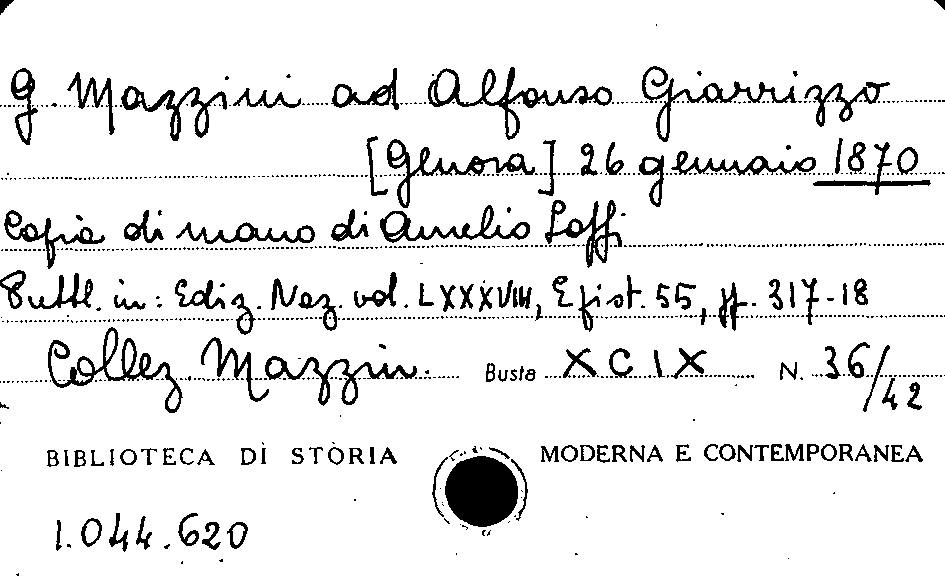 G. Mazzini ad Alfonso Giarrizzo
[Genova] 26 gennaio 1870
Copia di mano di Aurelio Saffi
Pubbl. in: Ediz. Naz. vol. LXXXVIII, Epist. 55, pp. 317-18
Collez. Mazzin. Busta XCIX N. 36/42
BIBLIOTECA DI STORIA MODERNA E CONTEMPORANEA
1.044.620